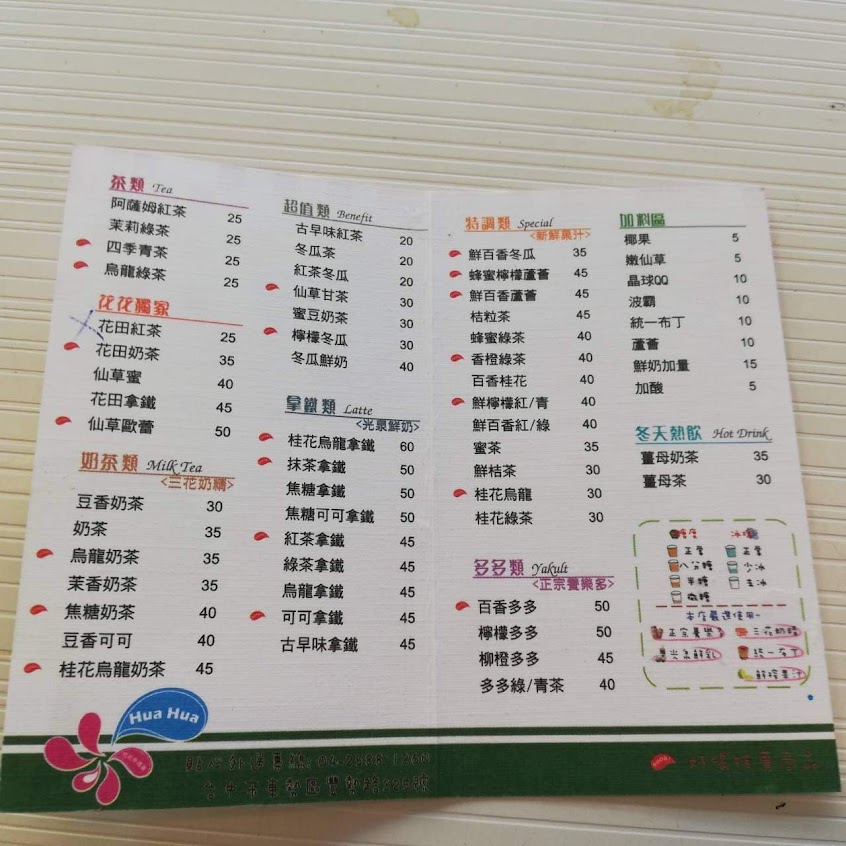 茶類 Tea
阿薩姆紅茶 25
茉莉綠茶 25
四季青茶 25
烏龍綠茶 25
花花獨家
花田紅茶 25
花田奶茶 35
仙草蜜 40
花田拿鐵 45
仙草歐蕾 50
奶茶類 Milk Tea
<三花奶精>
豆香奶茶 30
奶茶 35
烏龍奶茶 35
茉香奶茶 35
焦糖奶茶 40
豆香可可 40
桂花烏龍奶茶 45
超值類 Benefit
古早味紅茶 20
冬瓜茶 20
紅茶冬瓜 20
仙草甘茶 30
蜜豆奶茶 30
檸檬冬瓜 30
冬瓜鮮奶 40
拿鐵類 Latte
<光泉鮮奶>
桂花烏龍拿鐵 60
抹茶拿鐵 50
焦糖拿鐵 50
焦糖可可拿鐵 50
紅茶拿鐵 45
綠茶拿鐵 45
烏龍拿鐵 45
可可拿鐵 45
古早味拿鐵 45
特調類 Special
<新鮮果汁>
鮮百香冬瓜 35
蜂蜜檸檬蘆薈 45
鮮百香蘆薈 45
桔粒茶 45
蜂蜜綠茶 40
香橙綠茶 40
百香桂花 40
鮮檸檬紅/青 40
鮮百香紅/綠 40
蜜茶 35
鮮桔茶 30
桂花烏龍 30
桂花綠茶 30
多多類 Yakult
<正宗養樂多>
百香多多 50
檸檬多多 50
柳橙多多 45
多多綠/青茶 40
加料區
椰果 5
嫩仙草 5
晶球QQ 10
波霸 10
統一布丁 10
蘆薈 10
鮮奶加量 15
加酸 5
冬天熱飲 Hot Drink
薑母奶茶 35
薑母茶 30
糖度 冰塊
正常 正常
八分糖 少冰
半糖 去冰
微糖
本店嚴選使用~
正宗養樂多 三花奶精
光泉鮮乳 統一布丁
鮮榨果汁
Hua Hua
台中市東勢區豐勢路